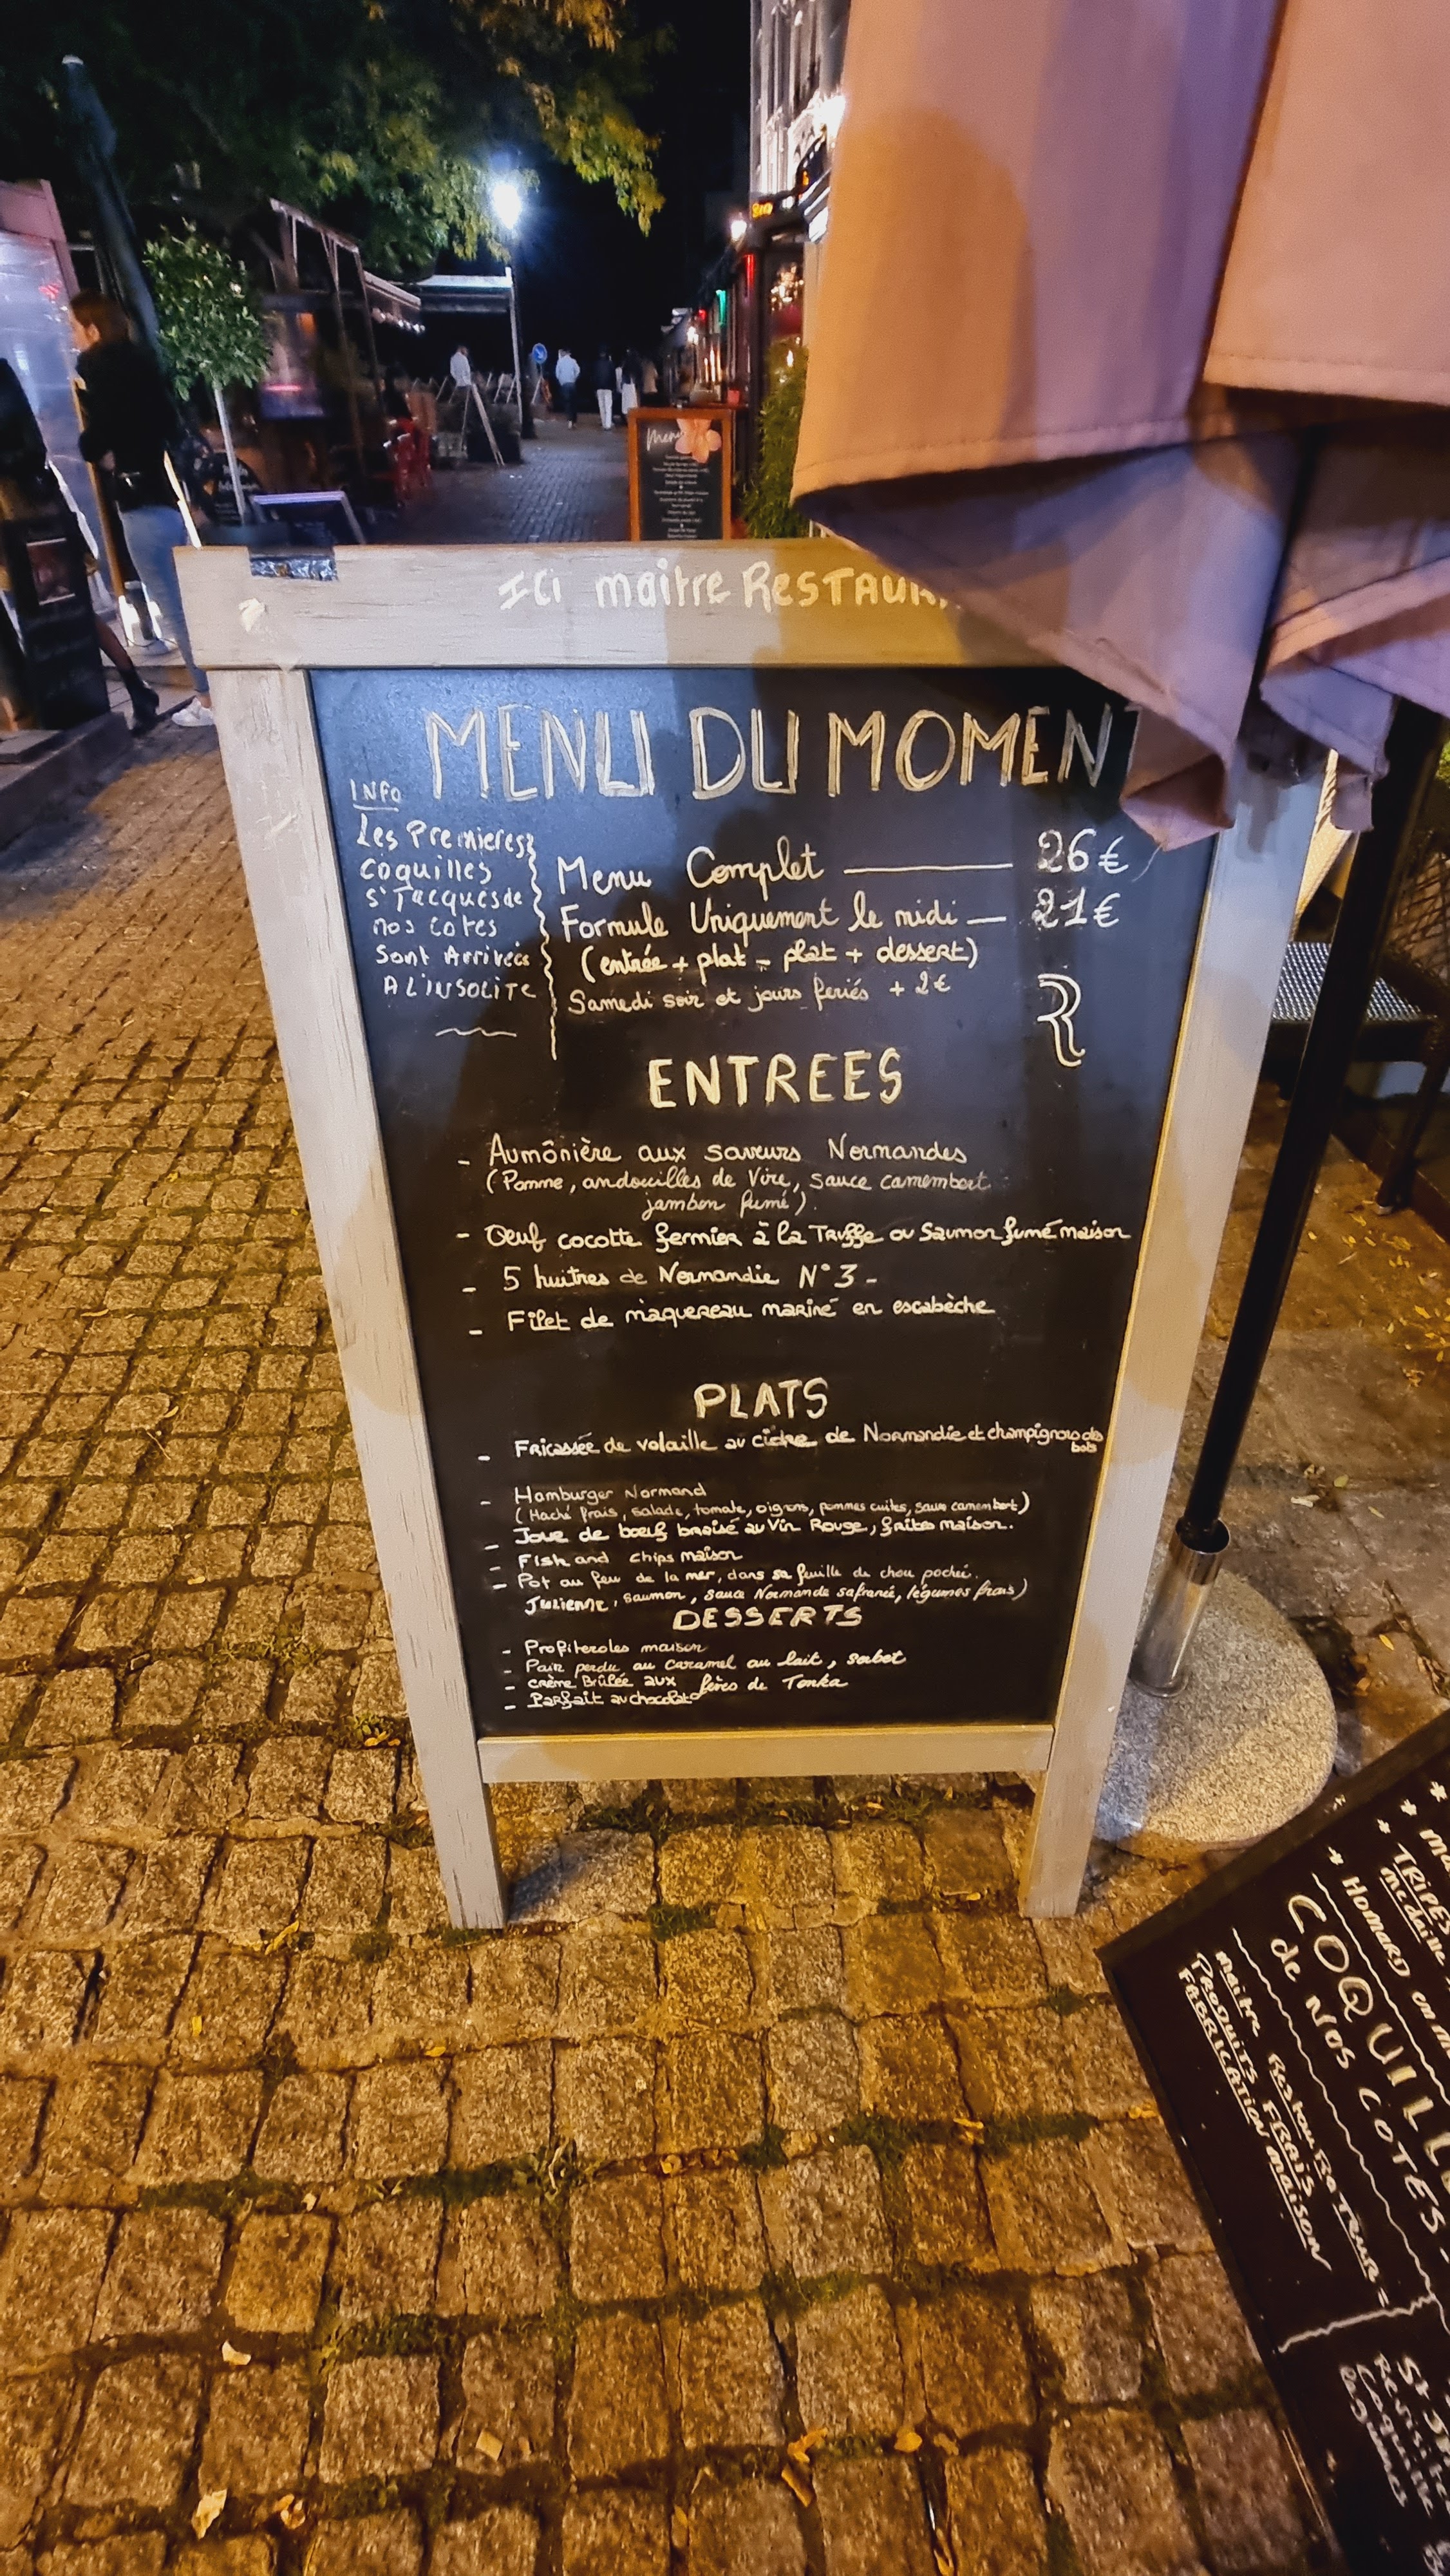 Ici maitre RESTAUR
MENU DU MOMENT
INFO
Les Premieres
coquilles
s'Jacques de
nos cotes
Sont Arrivées
A L'INSOLITE
Menu Complet 26€
Formule Uniquement le midi 21€
(entrée + plat - plat + dessert)
Samedi soir et jours feriés + 2€
R
ENTREES
- Aumônière aux saveurs Normandes
(Pomme, andouilles de Vire, sauce camembert
jambon fumé).
- Oeuf cocotte fermier à la Truffe ou Saumon fumé maison
- 5 huitres de Normandie N°3 -
- Filet de maquereau mariné en escabèche
PLATS
- Fricassée de volaille au cidre de Normandie et champignons des
bois
- Hamburger Normand
(Haché frais, salade, tomate, oignons, pommes cuites, sauce camembert)
- Joue de boeuf braisé au Vin Rouge, frites maison.
- Fish and chips maison
- Pot au feu de la mer, dans sa feuille de chou poché.
Julienne, saumon, sauce Normande safranée, légumes frais)
DESSERTS
- Profiteroles maison
- Pain perdu au caramel au lait, sorbet
- crème Brûlée aux fèves de Tonka
- Parfait au chocolat
Menu
* TRIPES
* HOMARD
COQUILL
de NOS COTES -
maitre Restaurateur -
PRODUITS FRAIS
FABRICATION maison